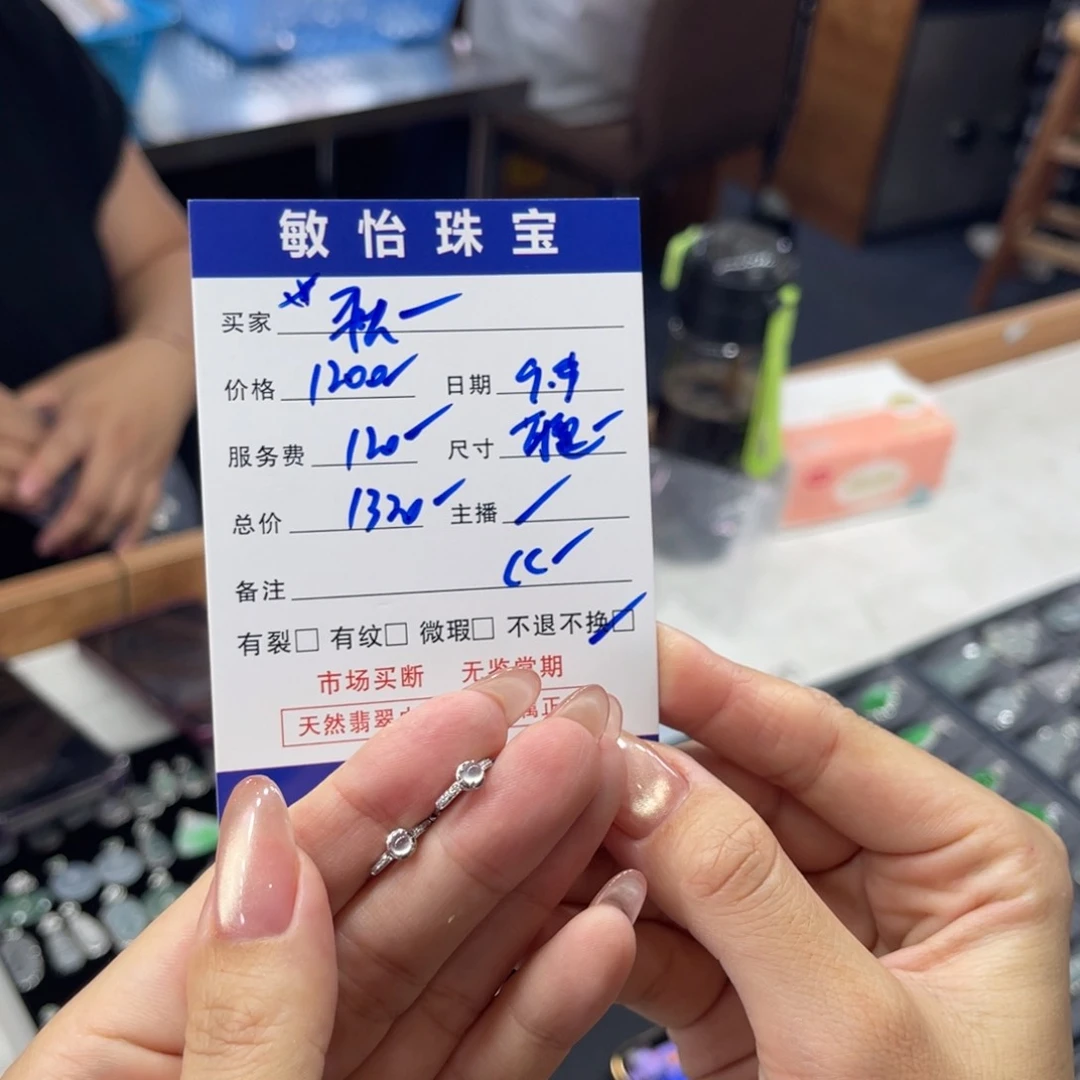 敏怡珠宝
买家
价格 1200 日期 9.9
服务费 120 尺寸
总价 1320 主播
备注
有裂□ 有纹□ 微瑕□ 不退不换□
市场买断 无鉴赏期
天然翡翠